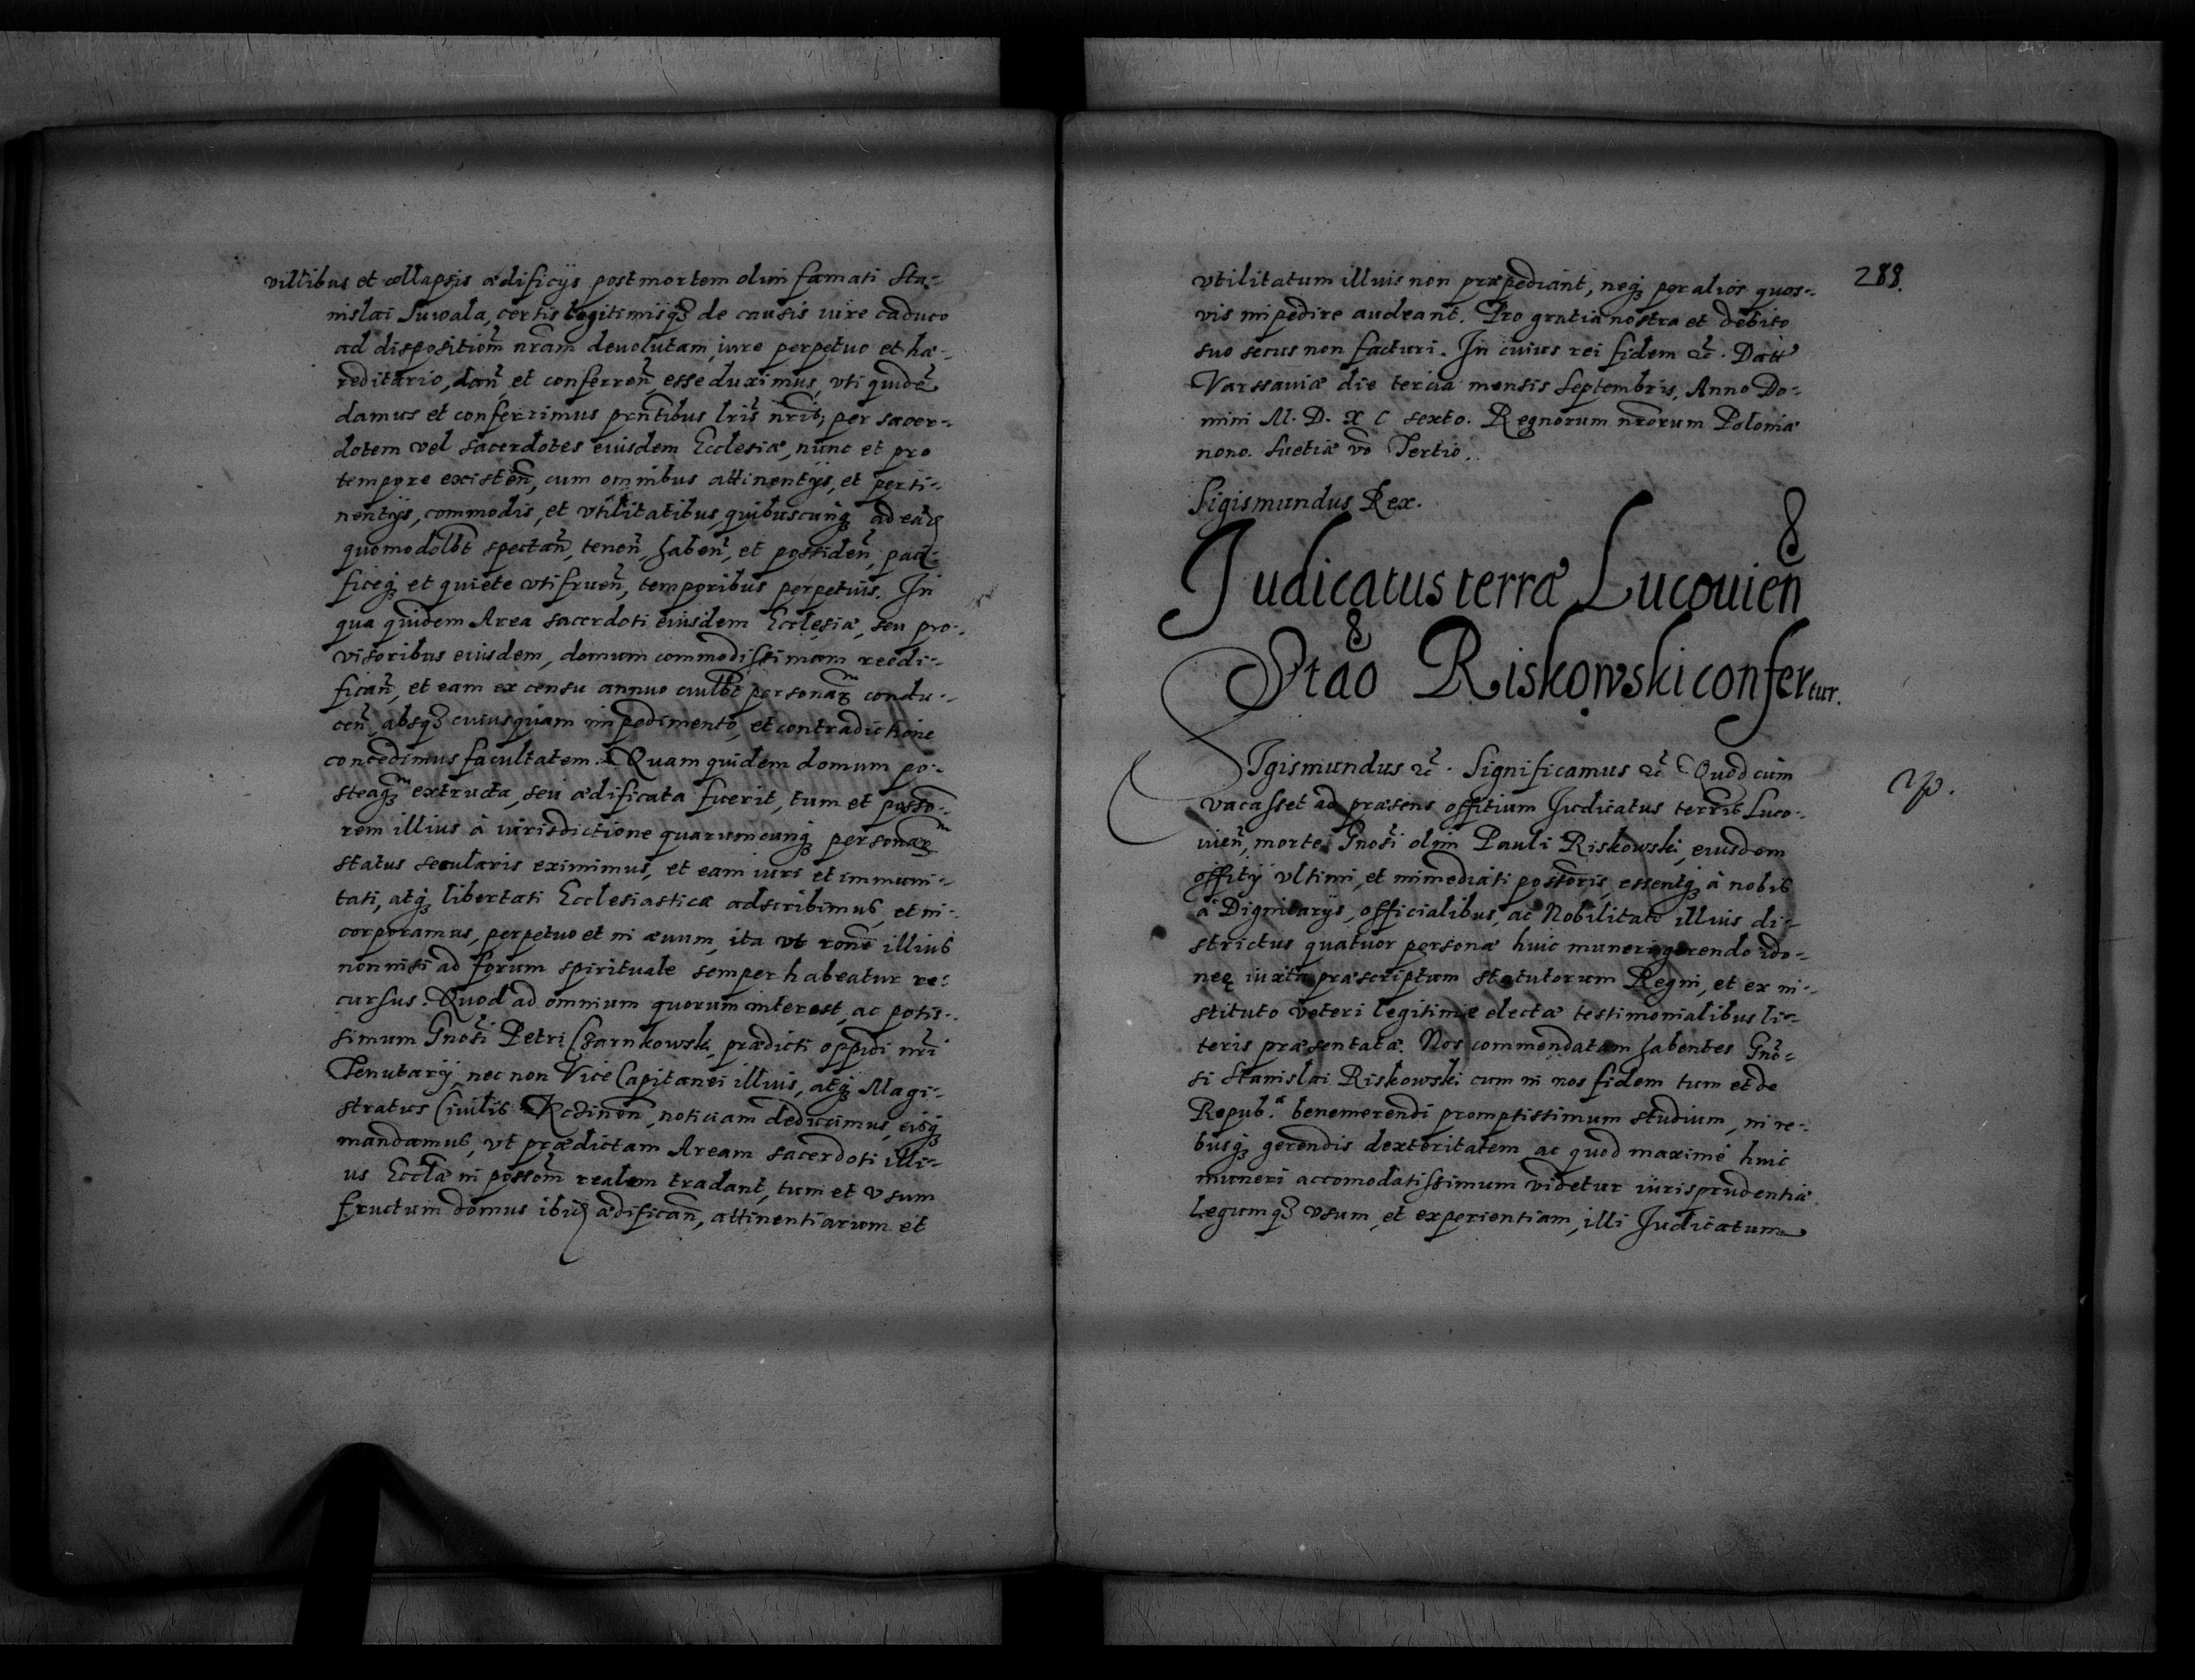 villibus et collapsis ædificijs post mortem olim famati Sta-
nislai Suwala, certis legitimisq3 de causis iure caduco
ad dispositiom nram deuolutam, iure perpetuo et hæ-
reditario, dan et conferren esse duximus, vti quide
damus et conferrimus prntibus lris nris, per sacer-
dotem vel sacerdotes eiusdem Ecclesiæ, nunc et pro
tempore existen, cum omnibus attinentijs, et perti-
nentijs, commodis, et vtilitatibus, quibuscunq ad
quomodolbt spectan, tenen, haben, et possiden, paci-
ficeq et quiete vti fruen, temporibus perpetuis. In
qua quidem Area sacerdoti eiusdem Ecclesiæ, seu pro-
visoribus eiusdem, domum commodissimam reedi-
fican, et eam ex censu annuo cuilbt personar condu-
cen, absq3 cuiusquam impedimento, et contradictione
concedimus facultatem. Quam quidem domum po-
steaq extructa, seu ædificata fuerit, tum et posso-
rem illius à iurisdictione quarumcunq personar
status secularis eximimus, et eam iuri et immuni-
tati, atq libertati Ecclesiasticæ adscribimus, et in-
corporamus, perpetuo et in æuum, ita vt rone illius
non nisi ad forum spirituale semper habeatur re-
cursus. Quod ad omnium quorum interest, ac potis-
simum Gnosi Petri Czarnkowski, prædicti oppidi nri
Tenutarij, nec non Vice Capitanei illius, atq Magi-
stratus Ciuilis noticiam deducimus, eisq
mandamus, vt prædictam Aream sacerdoti illi-
us Ecclæ in possom realem tradant, tum et vsum
fructum domus ædifican, attinentiarum et
288.
vtilitatum illuis non præpediant, neq per alios quos-
vis impedire audeant. Pro gratia nostra et debito
suo secus non facturi. In cuius rei fidem &c. Datt
Varssauiæ die tercia mensis Septembris, Anno Do-
mini M. D. X C sexto. Regnorum nrorum Poloniæ
nono. Suetiæ vo Tertio.
Sigismundus Rex.
Judicatus terræ Lucouien
Stao Riskowski confertur.
SIgismundus &c. Significamus &c Quod cum
vacasset ad præsens offitium Judicatus terris Luco-
uien, morte Gnosi olim Pauli Riskowski, eiusdem
offitij vltimi, et immediati possoris, essentq à nobis
à Dignitarijs, officialibus, ac Nobilitate illuis di-
strictus quatuor personæ huic muneri gerendo ido-
neę iuxta præscriptum statutorum Regni, et ex in-
stituto veteri legitime electæ testimonialibus li-
teris præsentatæ. Nos commendatam habentes Gno-
si Stanislai Riskowski cum in nos fidem tum et de
Repub.a benemerendi promptissimum studium, in re-
busq gerendis dexteritatem ac quod maximé huic
muneri accomodatissimum videtur iurisprudentiæ
legumq3 vsum, et experientiam, illi Judicatum